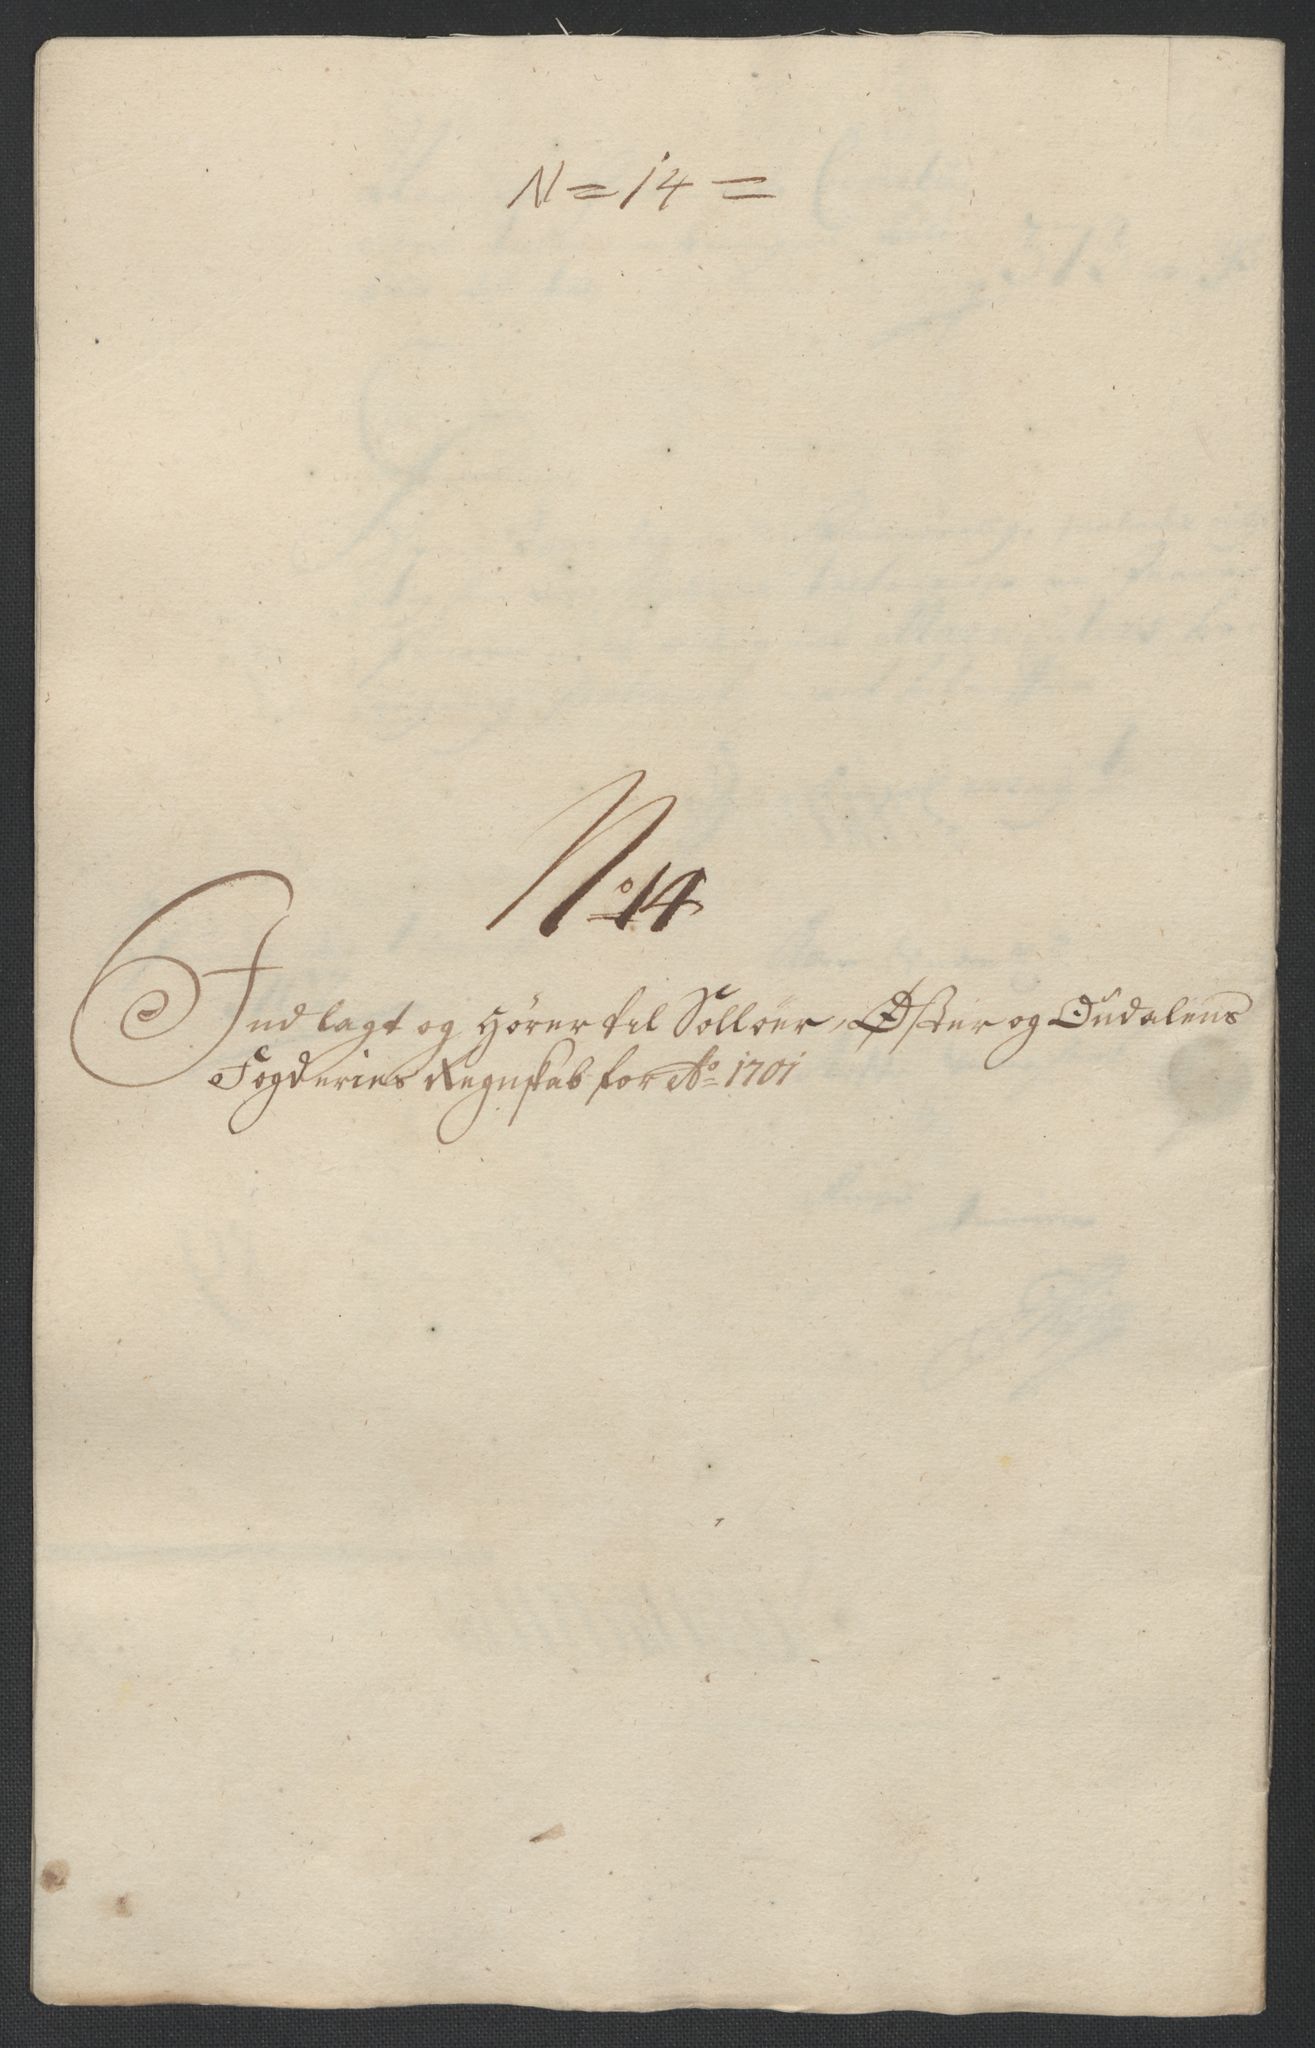 N = 14 =
No 14
Indlagt og hører til Solløer, Øster og Oudalens
Fogderies Regnskab for Ao 1701